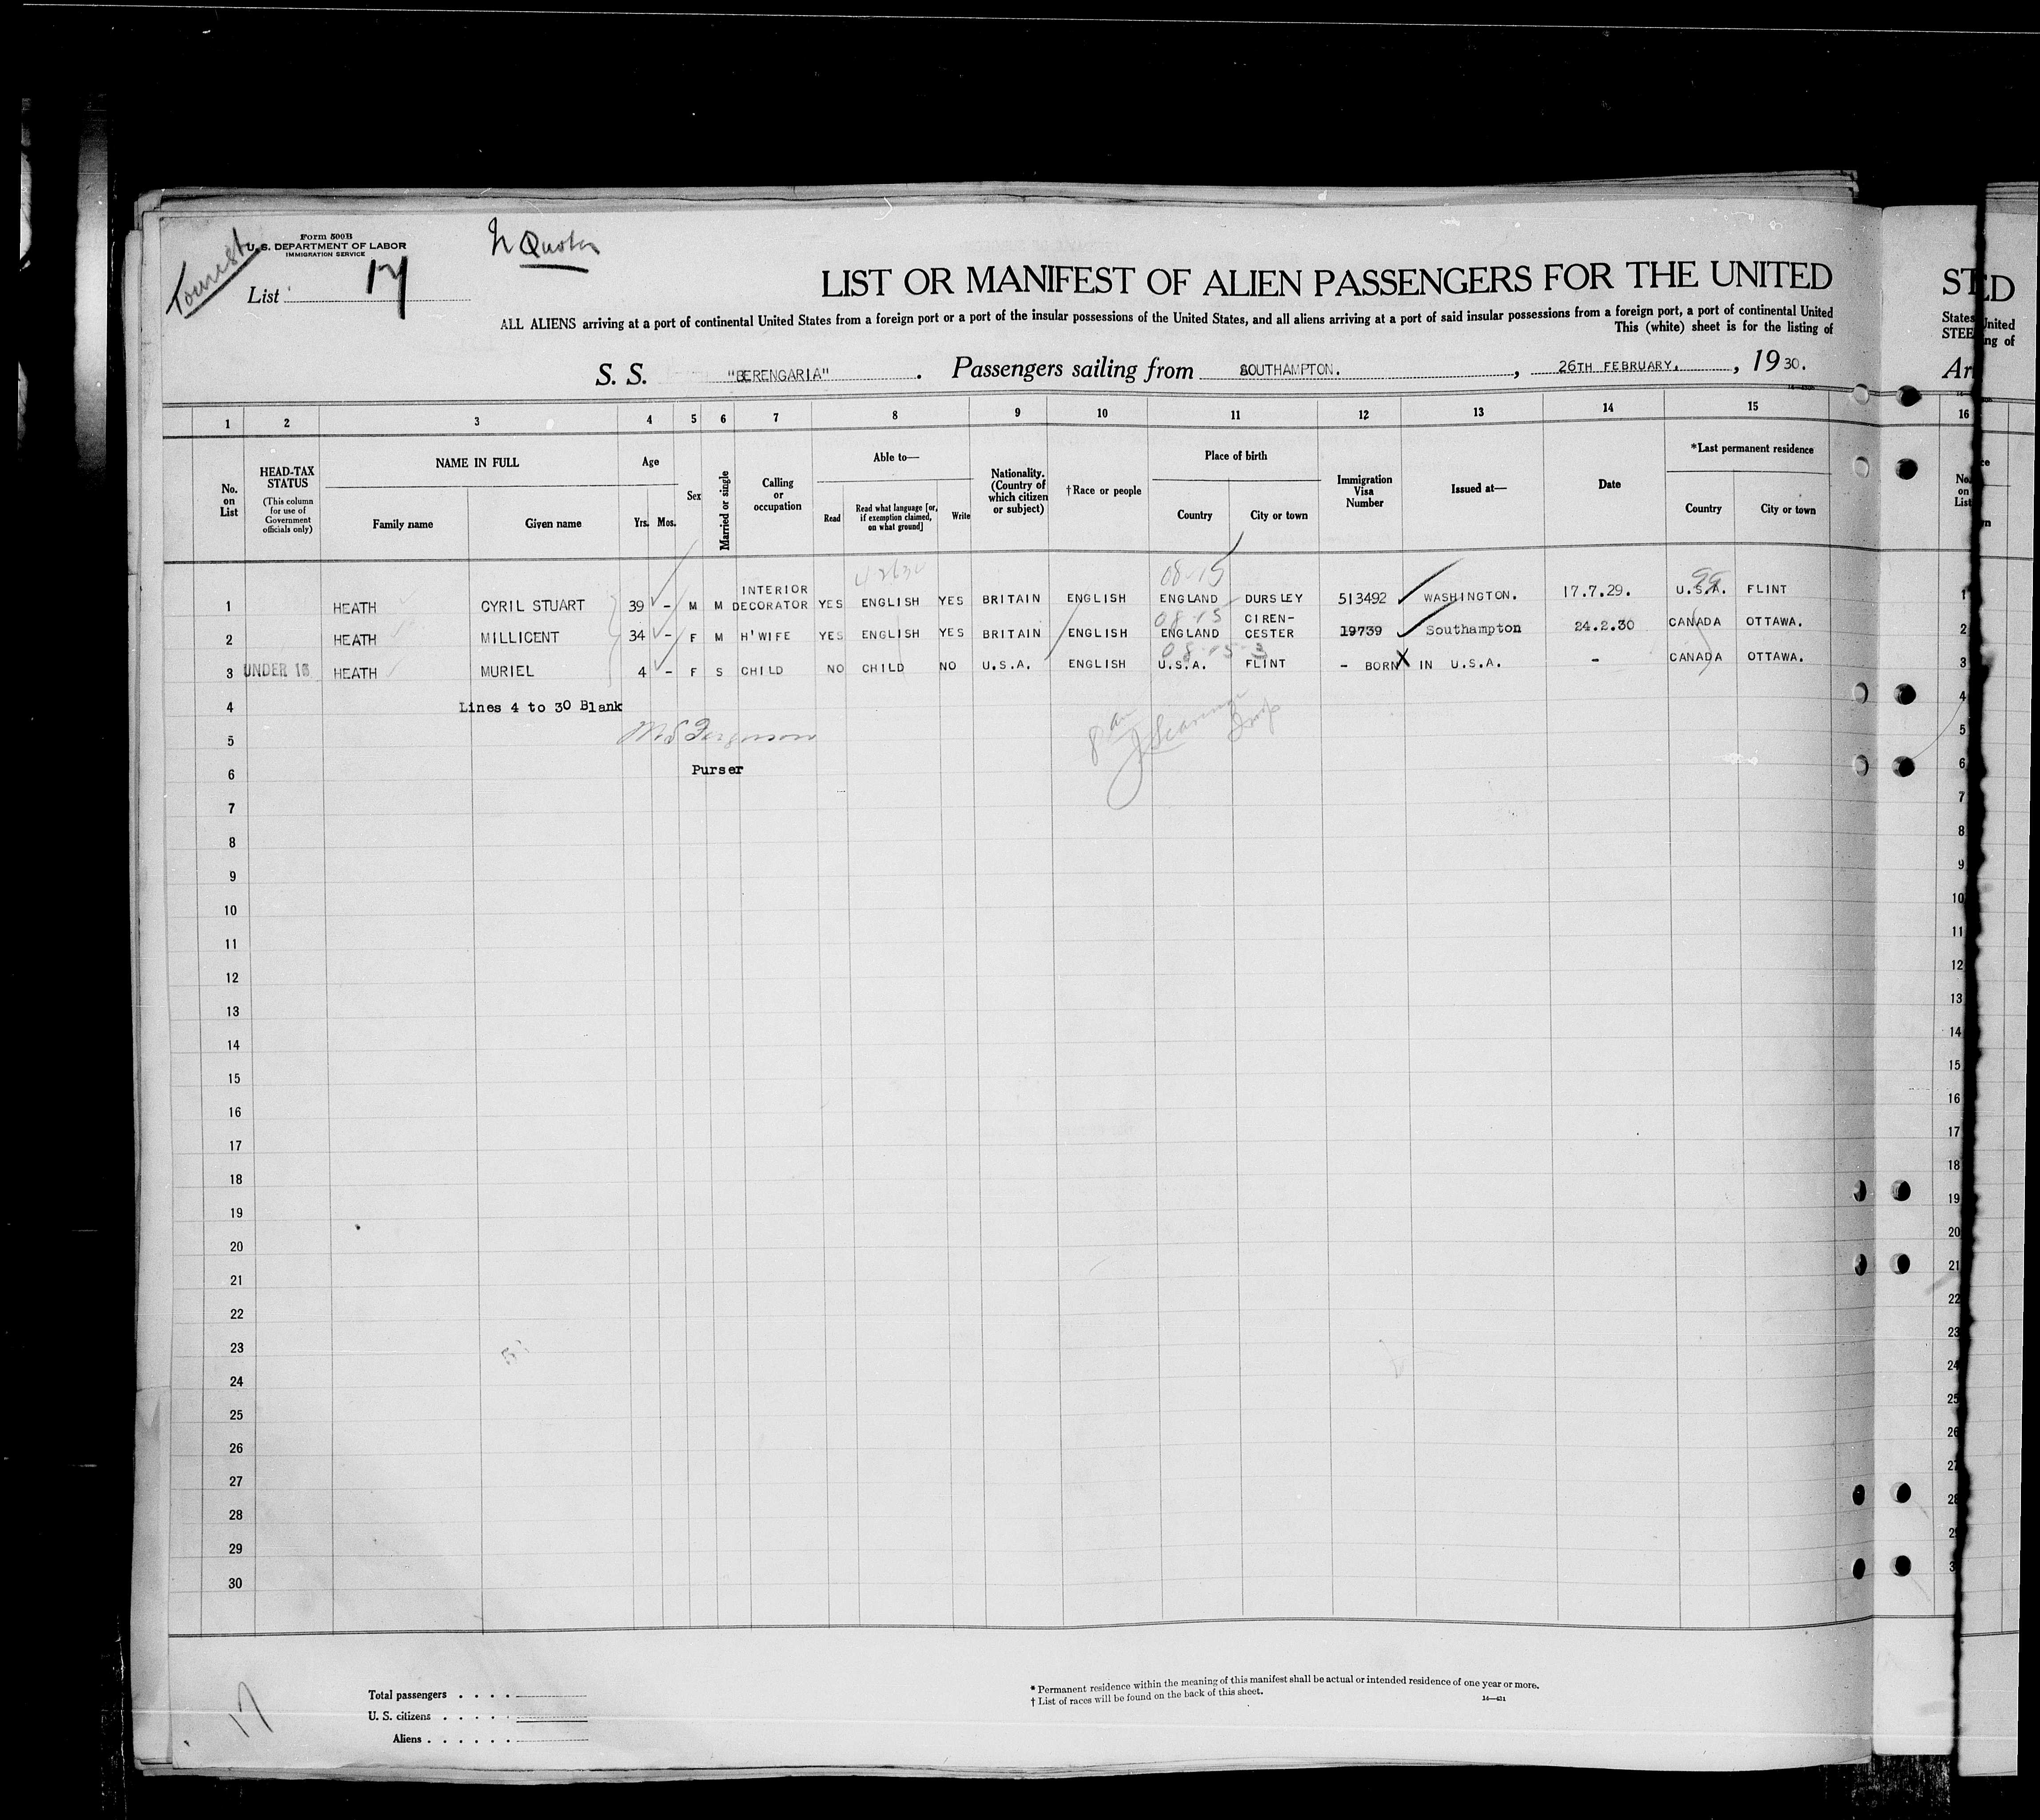 Form 500B
U. S. DEPARTMENT OF LABOR
IMMIGRATION SERVICE
Tourist
N Quota
List 17
LIST OR MANIFEST OF ALIEN PASSENGERS FOR THE UNITED
ALL ALIENS arriving at a port of continental United States from a foreign port or a port of the insular possessions of the United States, and all aliens arriving at a port of said insular possessions from a foreign port, a port of continental United
This (white) sheet is for the listing of
S. S. "BERENGARIA" . Passengers sailing from SOUTHAMPTON. , 26TH FEBRUARY. , 19 30.
1 2 3 4 5 6 7 8 9 10 11 12 13 14 15
No. on List
HEAD-TAX STATUS
(This column for use of Government officials only)
NAME IN FULL
Family name
Given name
Age
Yrs. Mos.
Sex
Married or single
Calling or occupation
Able to—
Read
Read what language [or, if exemption claimed, on what ground]
Write
Nationality. (Country of which citizen or subject)
†Race or people
Place of birth
Country
City or town
Immigration Visa Number
Issued at—
Date
*Last permanent residence
Country
City or town
08-15
99
1 HEATH CYRIL STUART 39 - M M INTERIOR DECORATOR YES ENGLISH YES BRITAIN ENGLISH ENGLAND DURSLEY 513492 WASHINGTON. 17.7.29. U.S.A. FLINT
08-15
2 HEATH MILLICENT 34 - F M H'WIFE YES ENGLISH YES BRITAIN ENGLISH ENGLAND CIREN-CESTER 19739 Southampton 24.2.30 CANADA OTTAWA.
08-15-3
3 UNDER 16 HEATH MURIEL 4 - F S CHILD NO CHILD NO U.S.A. ENGLISH U.S.A. FLINT - BORN X IN U.S.A. - CANADA OTTAWA.
4 Lines 4 to 30 Blank
5 Ferguson
6 Purser
7
8
9
10
11
12
13
14
15
16
17
18
19
20
21
22
23
24
25
26
27
28
29
30
Total passengers . . . .
U. S. citizens . . . . .
Aliens . . . . . .
* Permanent residence within the meaning of this manifest shall be actual or intended residence of one year or more.
† List of races will be found on the back of this sheet.
14—431
17
STED
States United
STEE ng of
Ar
16
No. on List
1
2
3
4
5
6
7
8
9
10
11
12
13
14
15
16
17
18
19
20
21
22
23
24
25
26
27
28